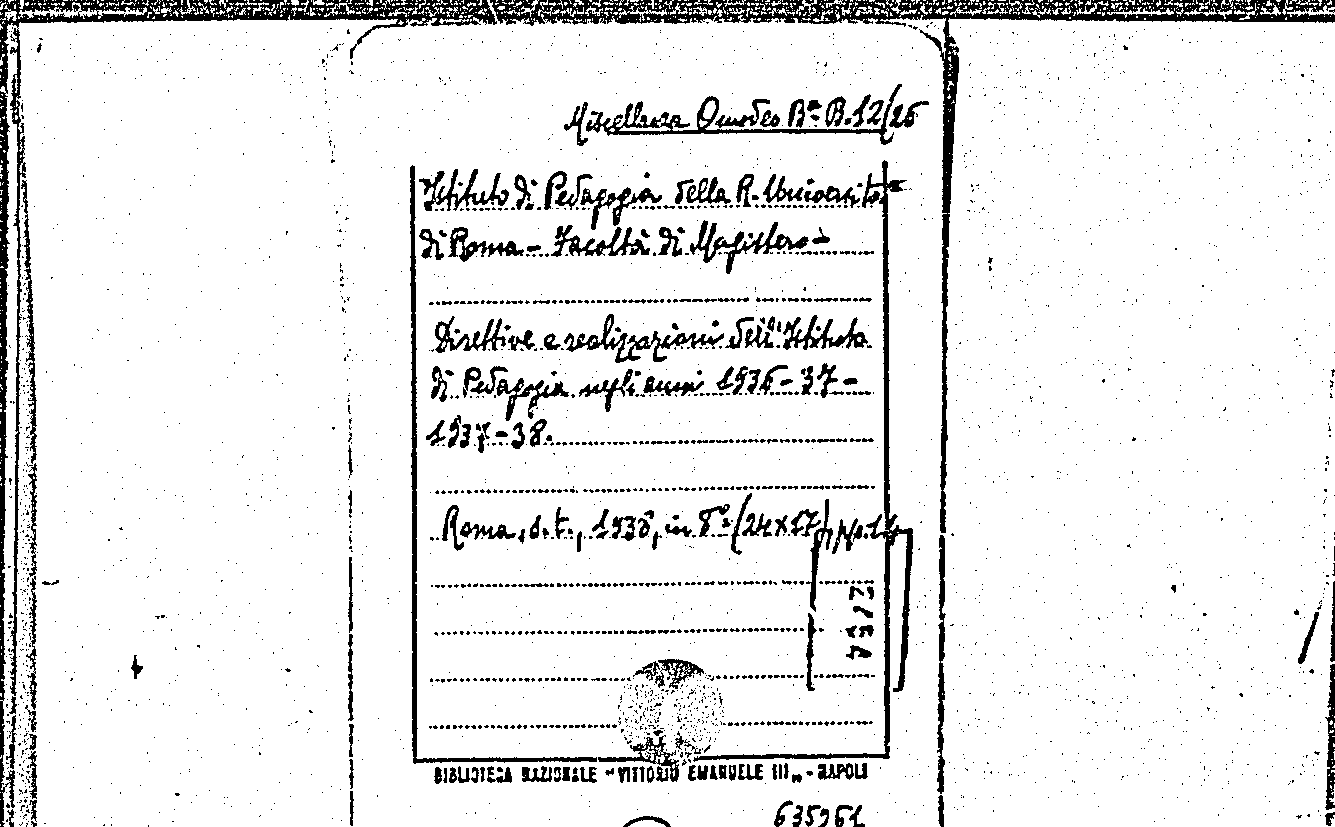 Miscellanea Omodeo Bª B.12/26
Istituto di Pedagogia della R. Università
di Roma - Facoltà di Magistero -
Direttive e realizzazioni dell'Istituto
di Pedagogia negli anni 1936-37-
1937-38.
Roma, s.t., 1938, in 8º (24x17)
BIBLIOTECA NAZIONALE "VITTORIO EMANUELE III„ - NAPOLI
635261